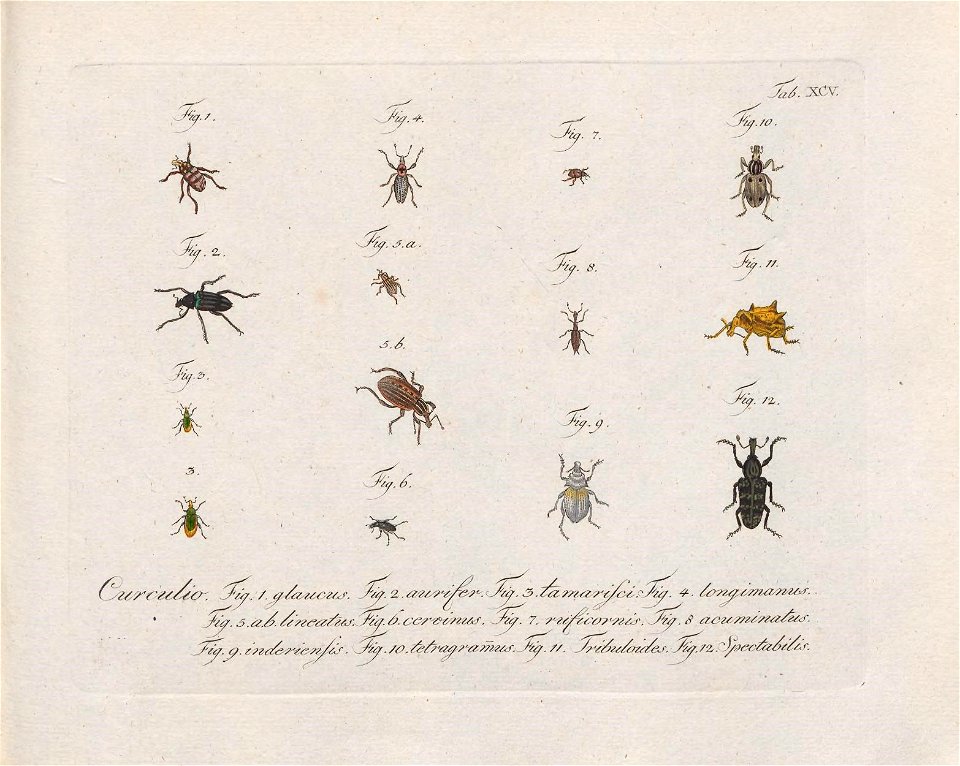 Tab. XCV.
Fig. 1.
Fig. 4.
Fig. 7.
Fig. 10.
Fig. 2.
Fig. 5. a.
Fig. 8.
Fig. 11.
5. b.
Fig. 3.
Fig. 12.
Fig. 9.
3.
Fig. 6.
Curculio. Fig. 1. glaucus. Fig. 2. aurifer. Fig. 3. tamariſci. Fig. 4. longimanus.
Fig. 5. a.b. lineatus. Fig. 6. cervinus. Fig. 7. ruficornis. Fig. 8 acuminatus.
Fig. 9. inderienſis. Fig. 10. tetragram̄us. Fig. 11. Tribuloides. Fig. 12. Spectabilis.